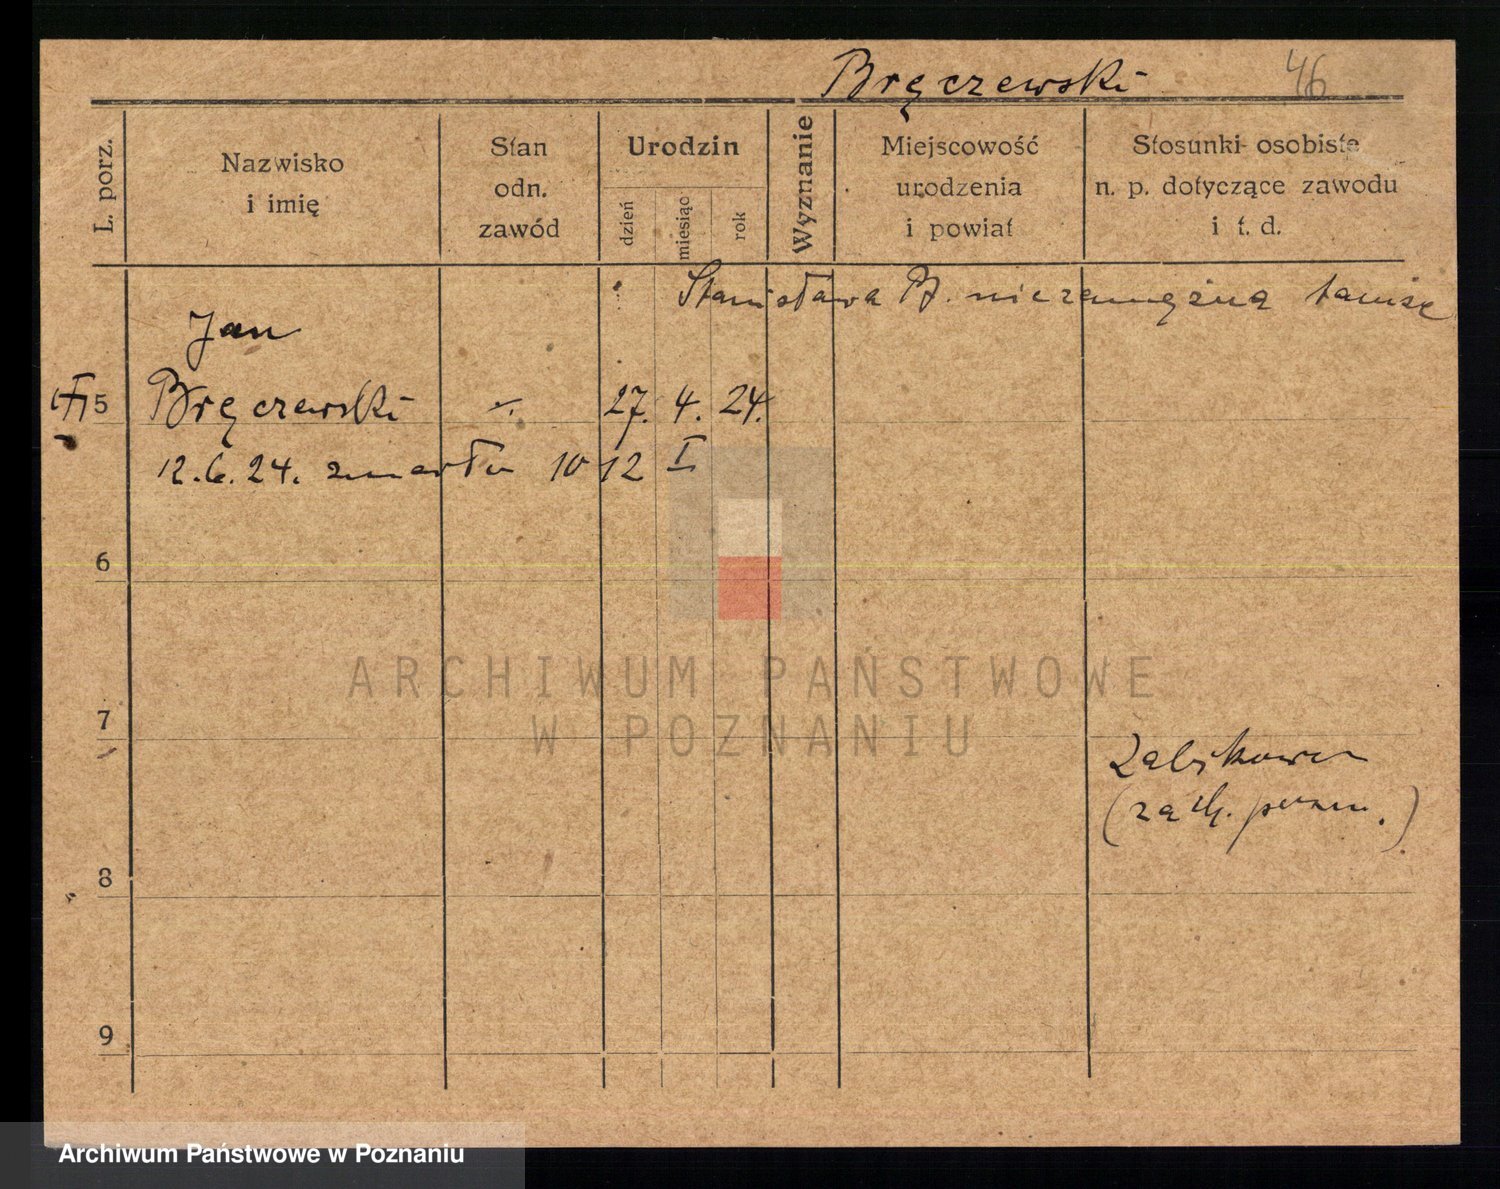 Bręczewski
46
L. porz.
Nazwisko
i imię
Stan
odn.
zawód
Urodzin
dzień
miesiąc
rok
Wyznanie
Miejscowość
urodzenia
i powiat
Stosunki osobiste
n. p. dotyczące zawodu
i t. d.
Stanisława B. niezamężna
Jan
5 Bręczewski 27. 4. 24.
12.6.24. 10 12 I
6
ARCHIWUM PAŃSTWOWE
W POZNANIU
7
Żabikowo
8
9
Archiwum Państwowe w Poznaniu